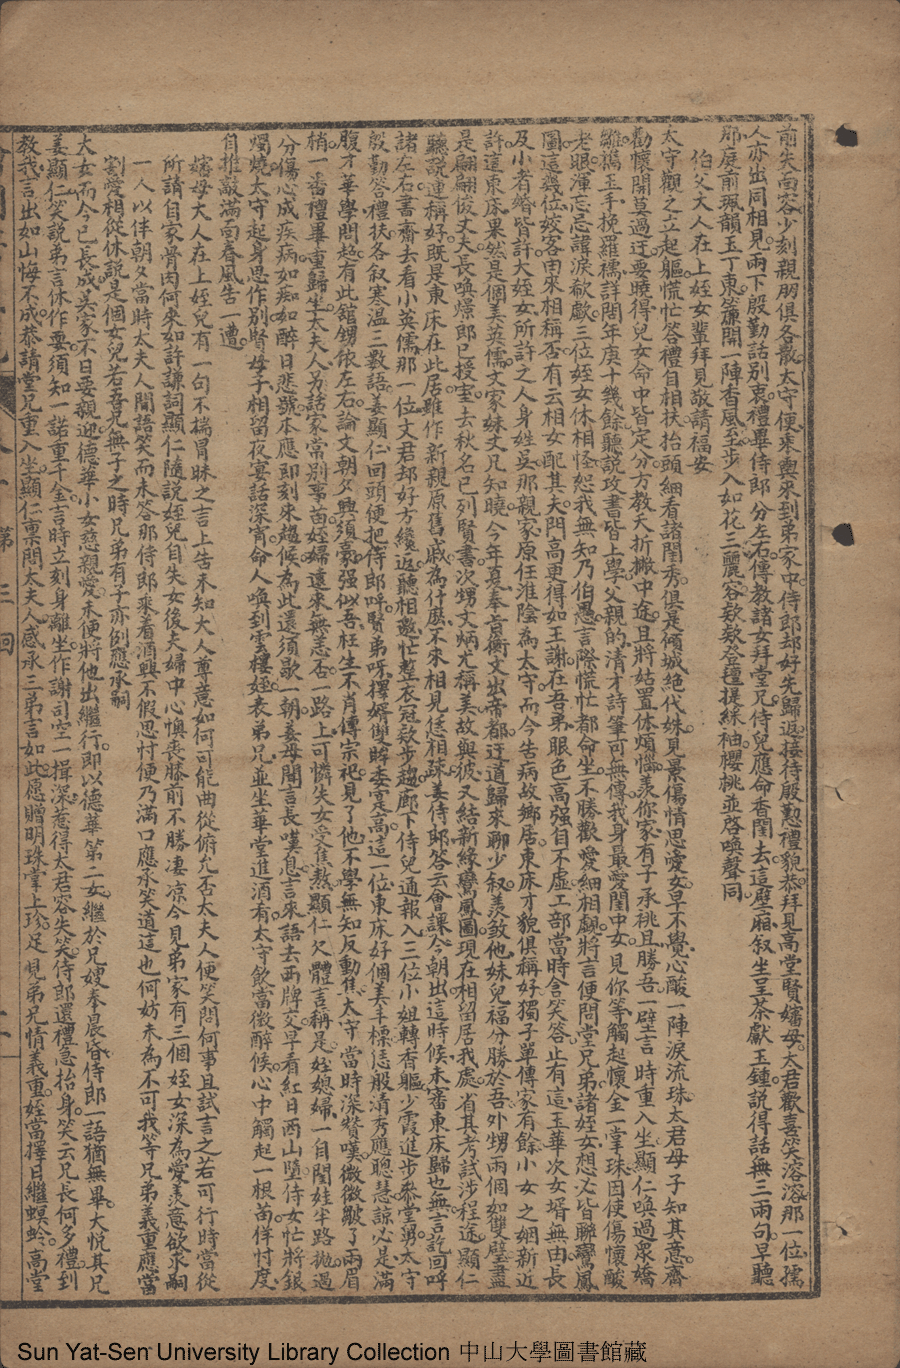 前失面容少刻親朋俱各散太守便乘輿來到弟家中侍郎却好先歸返接待殷懃禮貌恭拜見高堂賢嬸母大君歡喜笑溶溶那一位孺
人亦出同相見兩下殷勤話別衷禮畢侍郎分左右傳教諸女拜堂兄侍兒應命香閨去這壁廂叙坐呈茶獻玉鍾說得話無三兩句早聽
那庭前珮韻玉丁東簾開一陣香風至步入如花三麗容欵欵登氊提綵袖櫻桃並啓喚聲同
伯父大人在上姪女輩拜見敬請福安
太守觀之立起軀慌忙答禮自相扶抬頭細看諸閨秀俱是傾城絕代姝見景傷情思愛女早不覺心酸一陣淚流珠太君母子知其意齊
勸懷開莫過迂要曉得兒女命中皆定分方教夭折撇中途且將姑置休煩惱羨你家有子承祧且勝吾一壁言時重入坐顯仁喚過衆嬌
雛襜玉手挽羅襦詳問年庚十幾餘聽說攻書皆上學父親的清才詩筆可無傳我身最愛閨中女見你等觸起懷金一掌珠因使傷懷酸
老眼渾忘忌諱淚欷歔三位姪女休相怪恕我無知乃伯愚言際慌忙都命坐不勝歡愛細相覷將言便問堂兄弟諸姪女想必皆聯鸞鳳
圖這幾位姣客由來相稱否有云相女配其夫門高更得如王謝在吾弟眼色高强自不虛工部當時含笑答止有這玉華次女壻無由長
及小者婚皆許大姪女所許之人身姓吳那親家原任淮陰為太守而今告病故鄉居東床才貌俱稱好獨子單傳家有餘小女之姻新近
許這東床果然是個美英儒文家妹丈兄知曉今年夏奉旨衡文出帝都迂道歸來聊少叙羨敘他妹兒福分勝於吾外甥兩個如雙璧盡
是翩翩俊丈夫長喚燝郎已授室去秋名已列賢書次甥文炳尤稱美故與彼又結新緣鸞鳳圖現在相留居我處省其考試涉程途顯仁
聽說連稱好既是東床在此居雖作新親原舊戚為什麽不來相見恁相疎姜侍郎答云會課今朝出這時候未審東床歸也無言訖回呼
諸左右書齋去看小英儒那一位文君却好方纔返聽相邀忙整衣冠欵步趨廊下侍兒通報入三位小姐轉香軀少霞進步叅堂舅太守
殷勤答禮扶各叙寒溫三數語姜顯仁回頭便把侍郎呼賢弟呀擇婿雙眸委寔高這一位東床好個美丰標恁般清秀應聰慧諒必是滿
腹才華學問超有此舘甥依左右論文朝夕興須豪强似吾枉生不肖傳宗祀見了他不學無知反動焦太守當時深贊嘆微微皺了兩眉
梢一番禮畢重歸坐太夫人為話家常別事苗姪婦遠來無恙否一路上可憐失女受焦熬顯仁欠體言稱是姪媳婦一自閨娃半路拋過
分傷心成疾病如痴如醉日悲號本應即刻來趨候為此還須歇一朝姜母聞言長嘆息言來語去西牌交早看紅日西山墮侍女忙將銀
燭燒太守起身思作別賢母子相留夜宴話深宵命人喚到雲樓姪表弟兄並坐華堂進酒有太守飲當微醉候心中觸起一根苗佯忖度
自推敲滿面春風告一遭
嬸母大人在上姪兒有一句不揣冒昧之言上告未知大人尊意如何可能曲從俯允否太夫人便笑問何事且試言之若可行時當從
所請自家骨肉何來如許謙詞顯仁隨說姪兒自失女後夫婦中心懊喪膝前不勝凄凉今見弟家有三個姪女深為愛羨意欲求嗣
一人以伴朝夕當時太夫人聞語笑而未答那侍郎乘着酒興不假思忖便乃滿口應承笑道這也何妨未為不可我等兄弟義重應當
割愛相從休說是個女兒若吾兄無子之時兄弟有子亦例應承嗣
大女而今已長成美家不日要親迎德華小女慈親愛未便將他出繼行即以德華第二女繼於兄嫂奉晨昏侍郎一語猶無畢大悅其兄
姜顯仁笑說弟言休作耍須知一諾重千金言時立刻身離坐作謝司空一揖深惹得太君容失笑侍郎還禮急抬身笑云兄長何多禮到
教我言出如山悔不成恭請堂兄重入坐顯仁稟問太夫人感承三弟言如此愿贈明珠掌上珍足見弟兄情義重姪當擇日繼螟蛉高堂
第三回
Sun Yat-Sen University Library Collection 中山大學圖書館藏